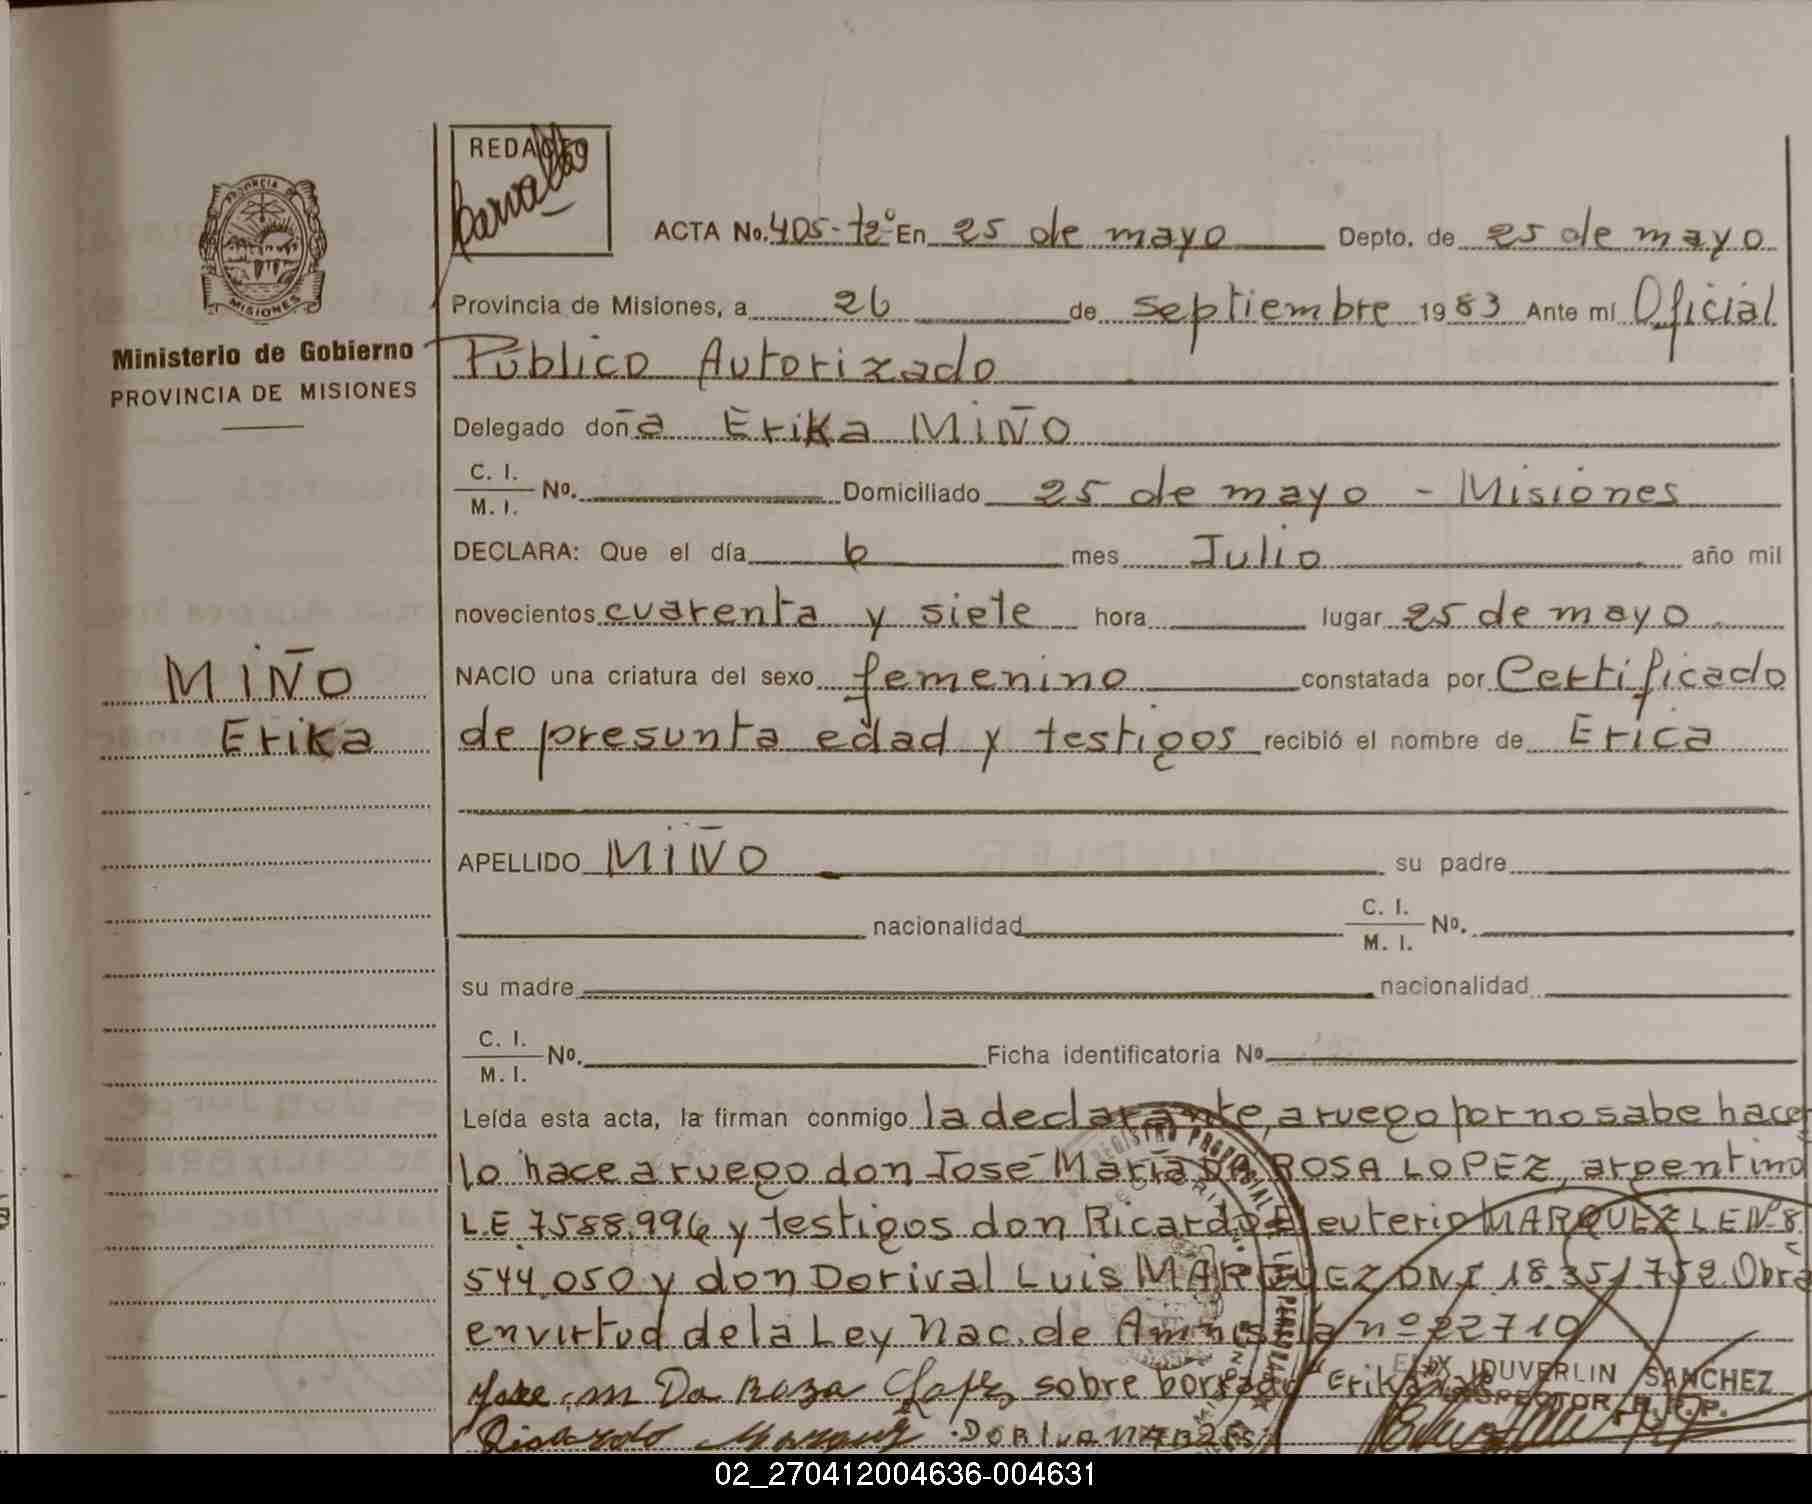 REDACTO
PROVINCIA DE
MISIONES
Ministerio de Gobierno
PROVINCIA DE MISIONES
MIÑO
Erika
ACTA No. 405-tº En 25 de mayo Depto. de 25 de mayo
Provincia de Misiones, a 26 de septiembre 1983 Ante mí Oficial
Público Autorizado
Delegado doña Erika MIÑO
C. I.
M. I. Nº. Domiciliado 25 de mayo - Misiones
DECLARA: Que el día 6 mes Julio año mil
novecientos cuarenta y siete hora lugar 25 de mayo
NACIO una criatura del sexo femenino constatada por Certificado
de presunta edad y testigos recibió el nombre de Erica
APELLIDO MIÑO su padre
nacionalidad C. I.
M. I. Nº.
su madre nacionalidad
C. I.
M. I. Nº. Ficha identificatoria Nº
Leída esta acta, la firman conmigo la declarante, a ruego por no sabe hacer
lo hace a ruego don José María DA ROSA LOPEZ, argentino
L.E 7588.996 y testigos don Ricardo Eleuterio MARQUEZ LE Nº 8
544.050 y don Dorival Luis MARQUEZ DNI 18.351752. Obra
en virtud de la Ley Nac. de Amnistía nº 22710
Jose m Da Roza Lopez sobre borrado "Erika" vale
FELIX DUVERLIN SANCHEZ
INSPECTOR R.P.P.
Ricardo Marquez
REGISTRO PROVINCIAL
02_270412004636-004631